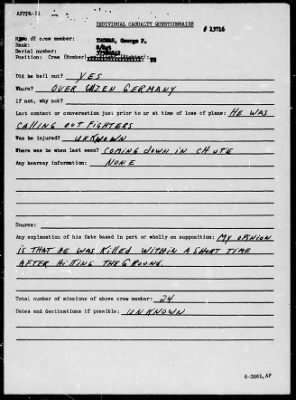 AFPPA-11
INDIVIDUAL CASUALTY QUESTIONNAIRE
# 13716
Name of crew member: THOMAS, George F.
Rank: S/Sgt
Serial number:
Position: Crew (Bomber)
Did he bail out? YES
Where? OVER UlZEN GERMANY
If not, why not?
Last contact or conversation just prior to or at time of loss of plane: HE WAS
CALLING OUT FIGHTERS
Was he injured? UNKNOWN
Where was he when last seen? COMING DOWN IN CHUTE
Any hearsay information: NONE
Source:
Any explanation of his fate based in part or wholly on supposition: MY OPINION
IS THAT HE WAS KILLED WITHIN A SHORT TIME
AFTER HITTING THE GROUND.
Total number of missions of above crew member: 24
Dates and destinations if possible: UNKNOWN
6-3861,AF